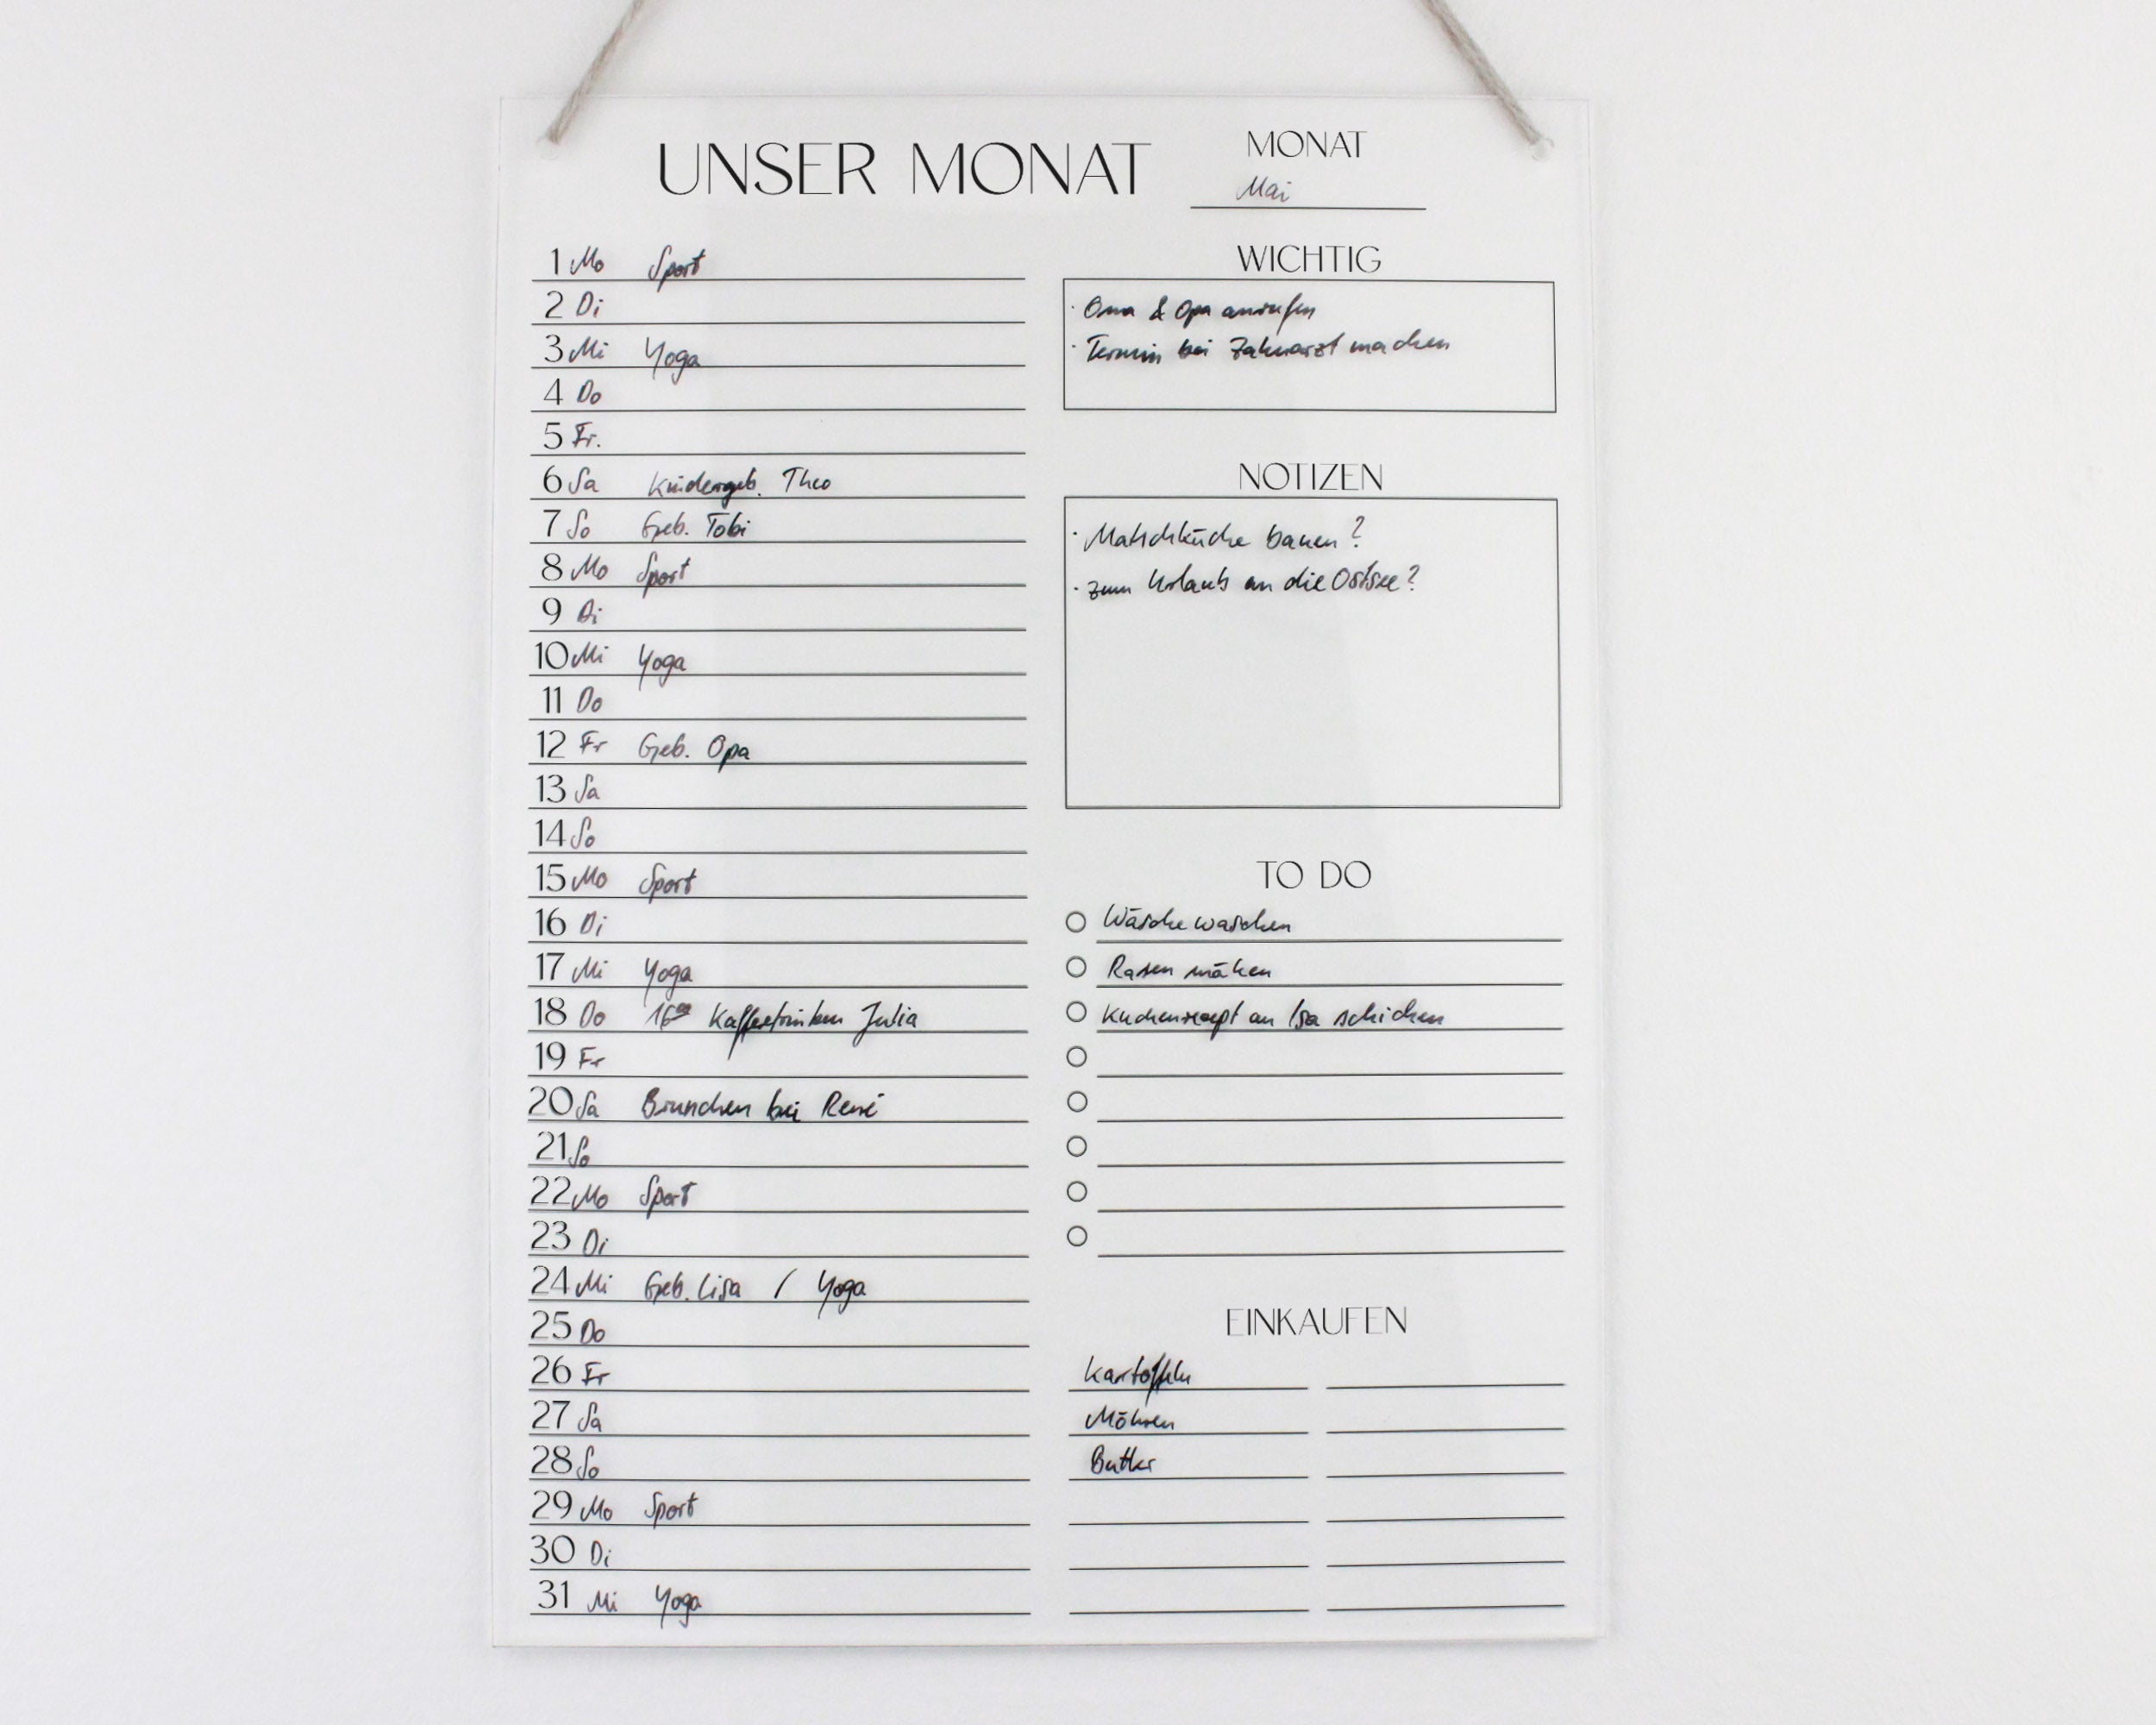 UNSER MONAT
MONAT
Mai
1 Mo Sport
2 Di
3 Mi Yoga
4 Do
5 Fr.
6 Sa Kindergeb. Theo
7 So Geb. Tobi
8 Mo Sport
9 Di
10 Mi Yoga
11 Do
12 Fr Geb. Opa
13 Sa
14 So
15 Mo Sport
16 Di
17 Mi Yoga
18 Do 16⁰⁰ Kaffeetrinken Julia
19 Fr
20 Sa Brunchen bei René
21 So
22 Mo Sport
23 Di
24 Mi Geb. Lisa / Yoga
25 Do
26 Fr
27 Sa
28 So
29 Mo Sport
30 Di
31 Mi Yoga
WICHTIG
· Oma & Opa anrufen
· Termin bei Zahnarzt machen
NOTIZEN
· Matschküche bauen?
· zum Urlaub an die Ostsee?
TO DO
Wäsche waschen
Rasen mähen
Kuchenrezept an Isa schicken
EINKAUFEN
Kartoffeln
Möhren
Butter